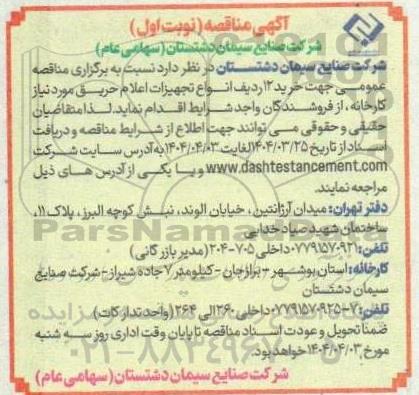 آگهی مناقصه (نوبت اول)
شرکت صنایع سیمان دشتستان (سهامی عام)
شرکت صنایع سیمان دشتستان در نظر دارد نسبت به برگزاری مناقصه
عمومی جهت خرید ۱۲ ردیف انواع تجهیزات اعلام حریق مورد نیاز
کارخانه، از فروشندگان واجد شرایط اقدام نماید. لذا متقاضیان
حقیقی و حقوقی می توانند جهت اطلاع از شرایط مناقصه و دریافت
اسناد از تاریخ ۱۴۰۴/۰۳/۲۵ لغایت ۱۴۰۴/۰۴/۰۳ به آدرس سایت شرکت
www.dashtestancement.com و یا یکی از آدرس های ذیل
مراجعه نمایند.
دفتر تهران: میدان آرژانتین، خیابان الوند، نبش کوچه البرز، پلاک ۱۱،
ساختمان شهید صیاد خدایی
تلفن: ۰۷۷۹۱۵۷۰۹۲۱ داخلی ۷۰۵-۲۰۴ (مدیر بازرگانی)
کارخانه: استان بوشهر - برازجان - کیلومتر ۷ جاده شیراز - شرکت صنایع
سیمان دشتستان
تلفن: ۷-۰۷۷۹۱۵۷۰۹۲۵ داخلی ۲۶۰ الی ۲۶۴ (واحد تدارکات)
ضمناً تحویل و عودت اسناد مناقصه تا پایان وقت اداری روز سه شنبه
مورخ ۱۴۰۴/۰۴/۰۳ خواهد بود.
شرکت صنایع سیمان دشتستان (سهامی عام)